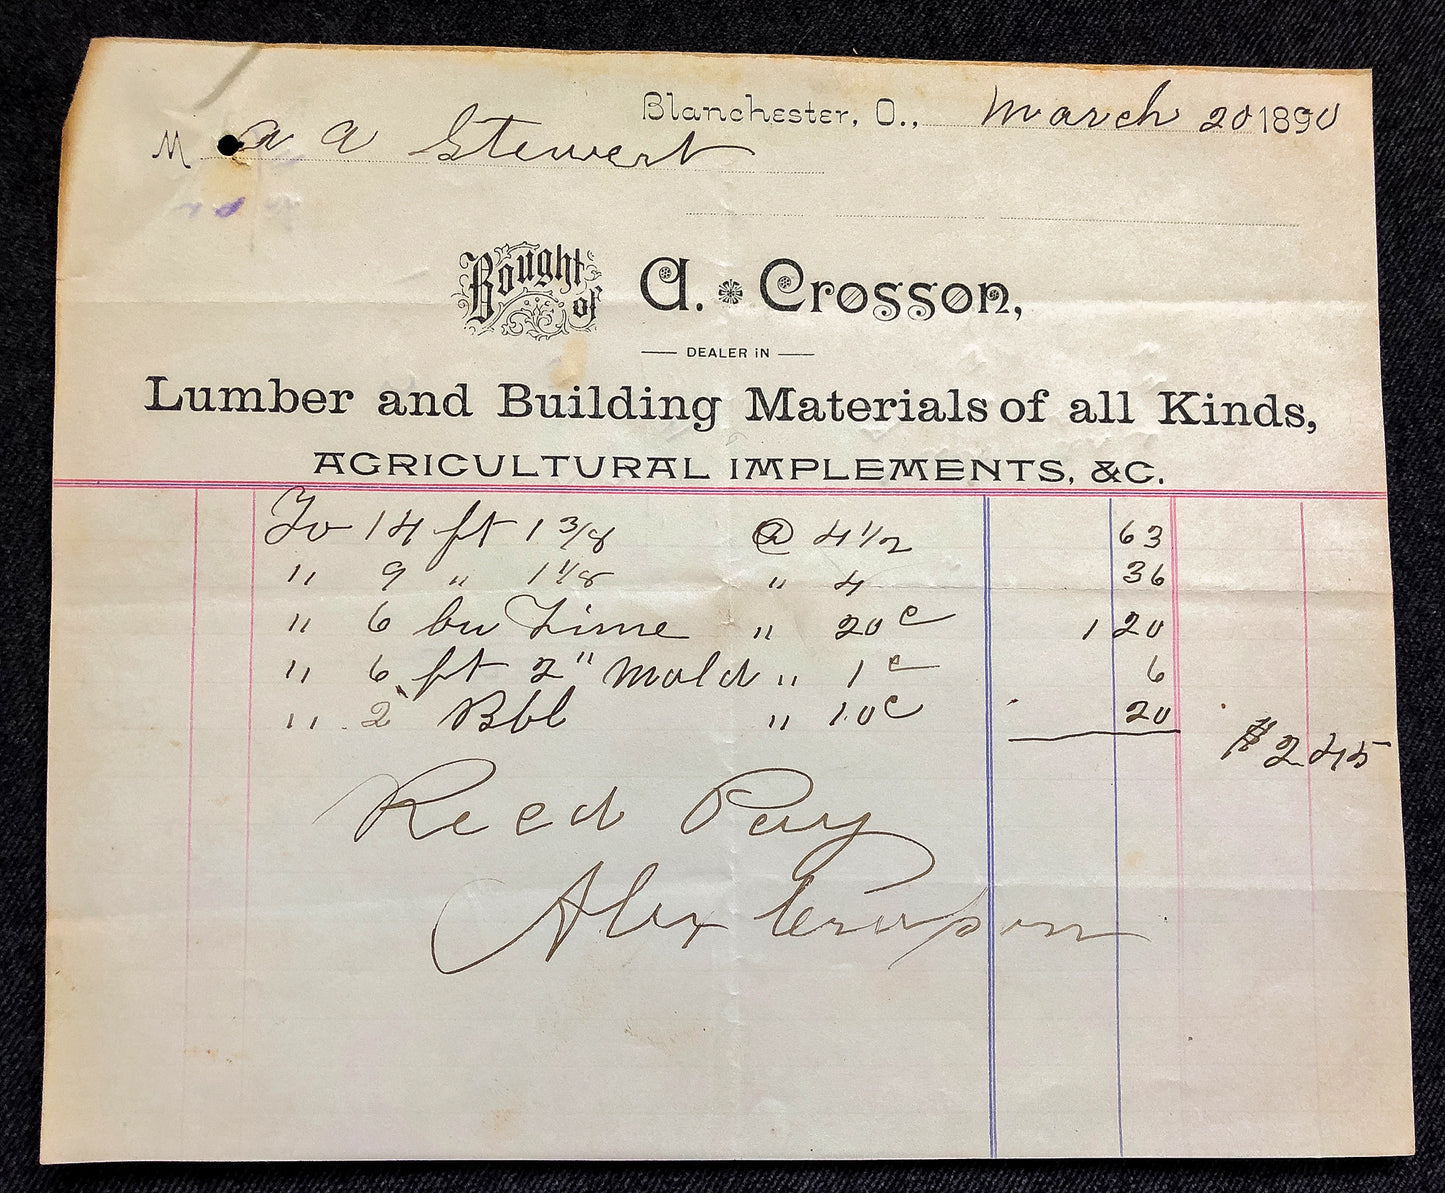 Blanchester, O., March 20 1890
M a a Stewert
Bought of A. Crosson,
DEALER IN
Lumber and Building Materials of all Kinds,
AGRICULTURAL IMPLEMENTS, &C.
To 14 ft 1 3/8 @ 4 1/2 63
" 9 " 1 1/8 " 4 36
" 6 bu Lime " 20c 1 20
" 6 ft 2" Mold " 1c 6
" 2 Bbl " 10c 20
$2.45
Recd Pay
Alex Crosson